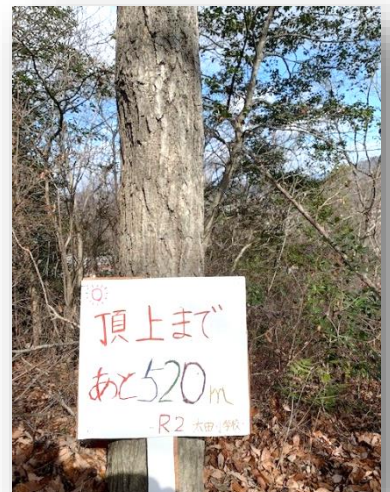 頂上まで
あと520m
-R2 太田小学校-